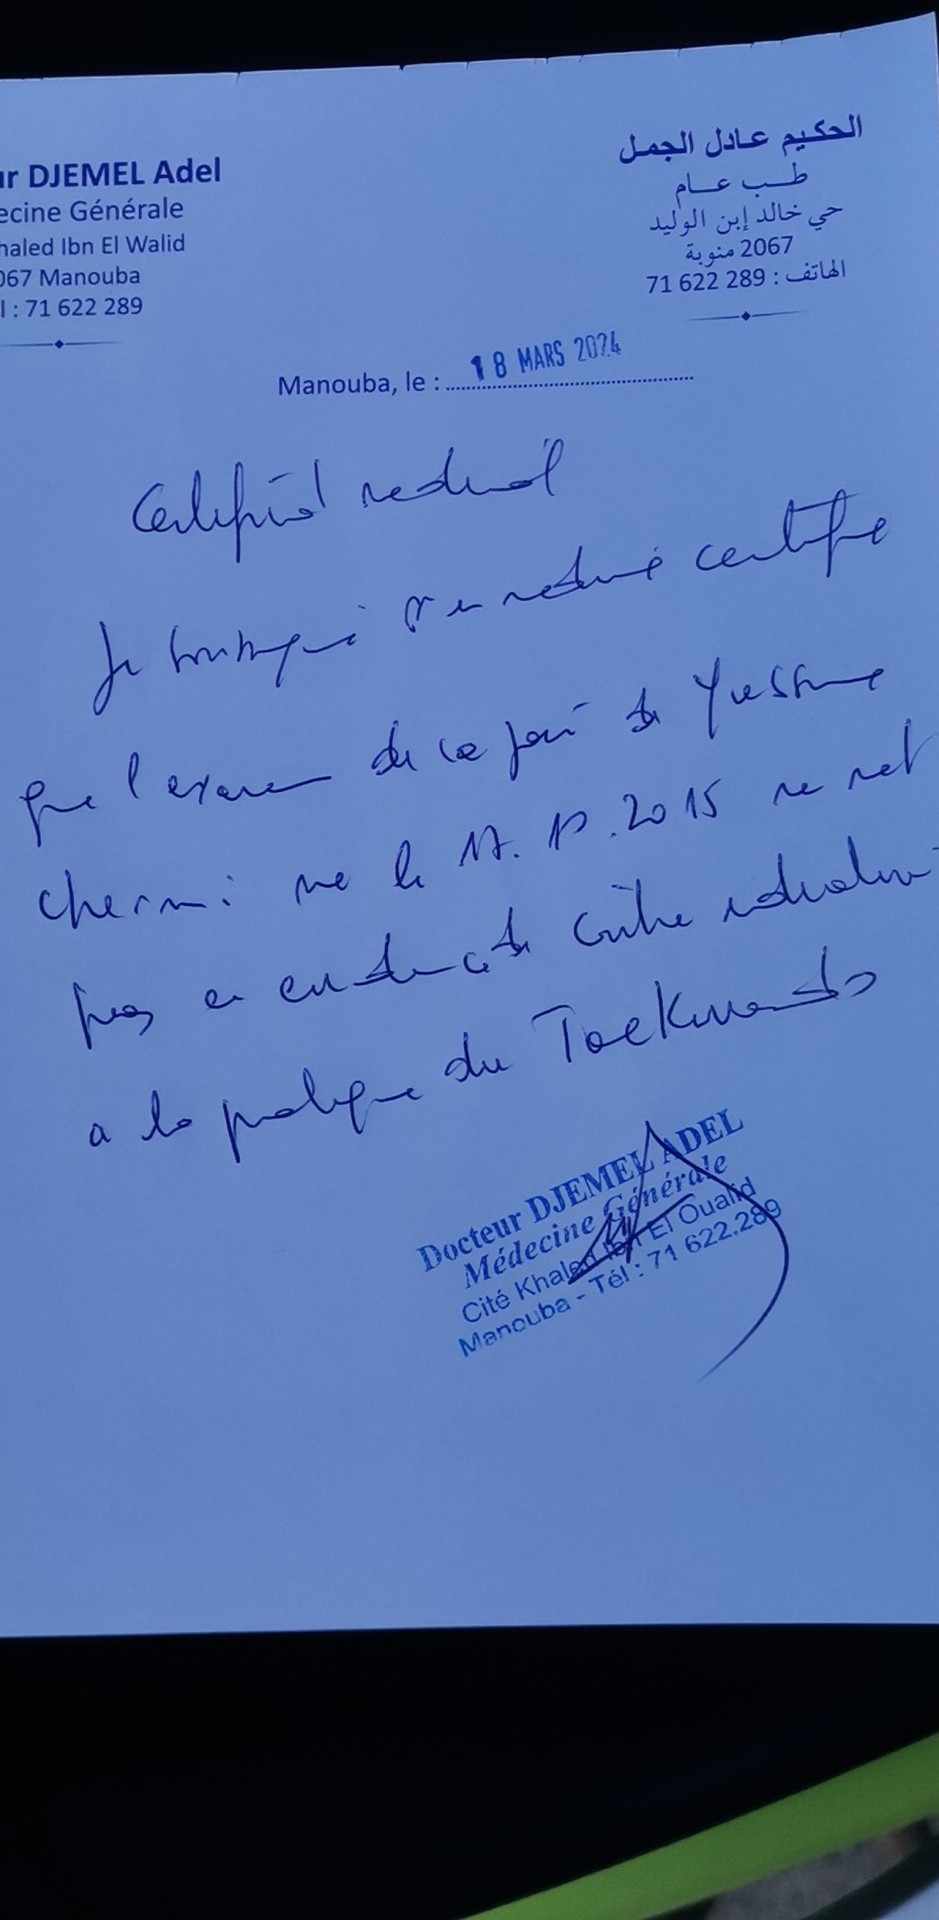 ur DJEMEL Adel
ecine Générale
haled Ibn El Walid
067 Manouba
l : 71 622 289
الحكيم عادل الجمل
طب عام
حي خالد إبن الوليد
2067 منوبة
الهاتف : 289 622 71
Manouba, le : 18 MARS 2024
Certificat medical
Je soussigné en medecine certifie
que l'examen de ce jour de Yessine
Chermi: né le 17.10.2015 ne met
pas en evidence de contre indication
a la pratique du Taekwando
Docteur DJEMEL ADEL
Médecine Générale
Cité Khaled Ibn El Oualid
Manouba - Tél : 71 622.289